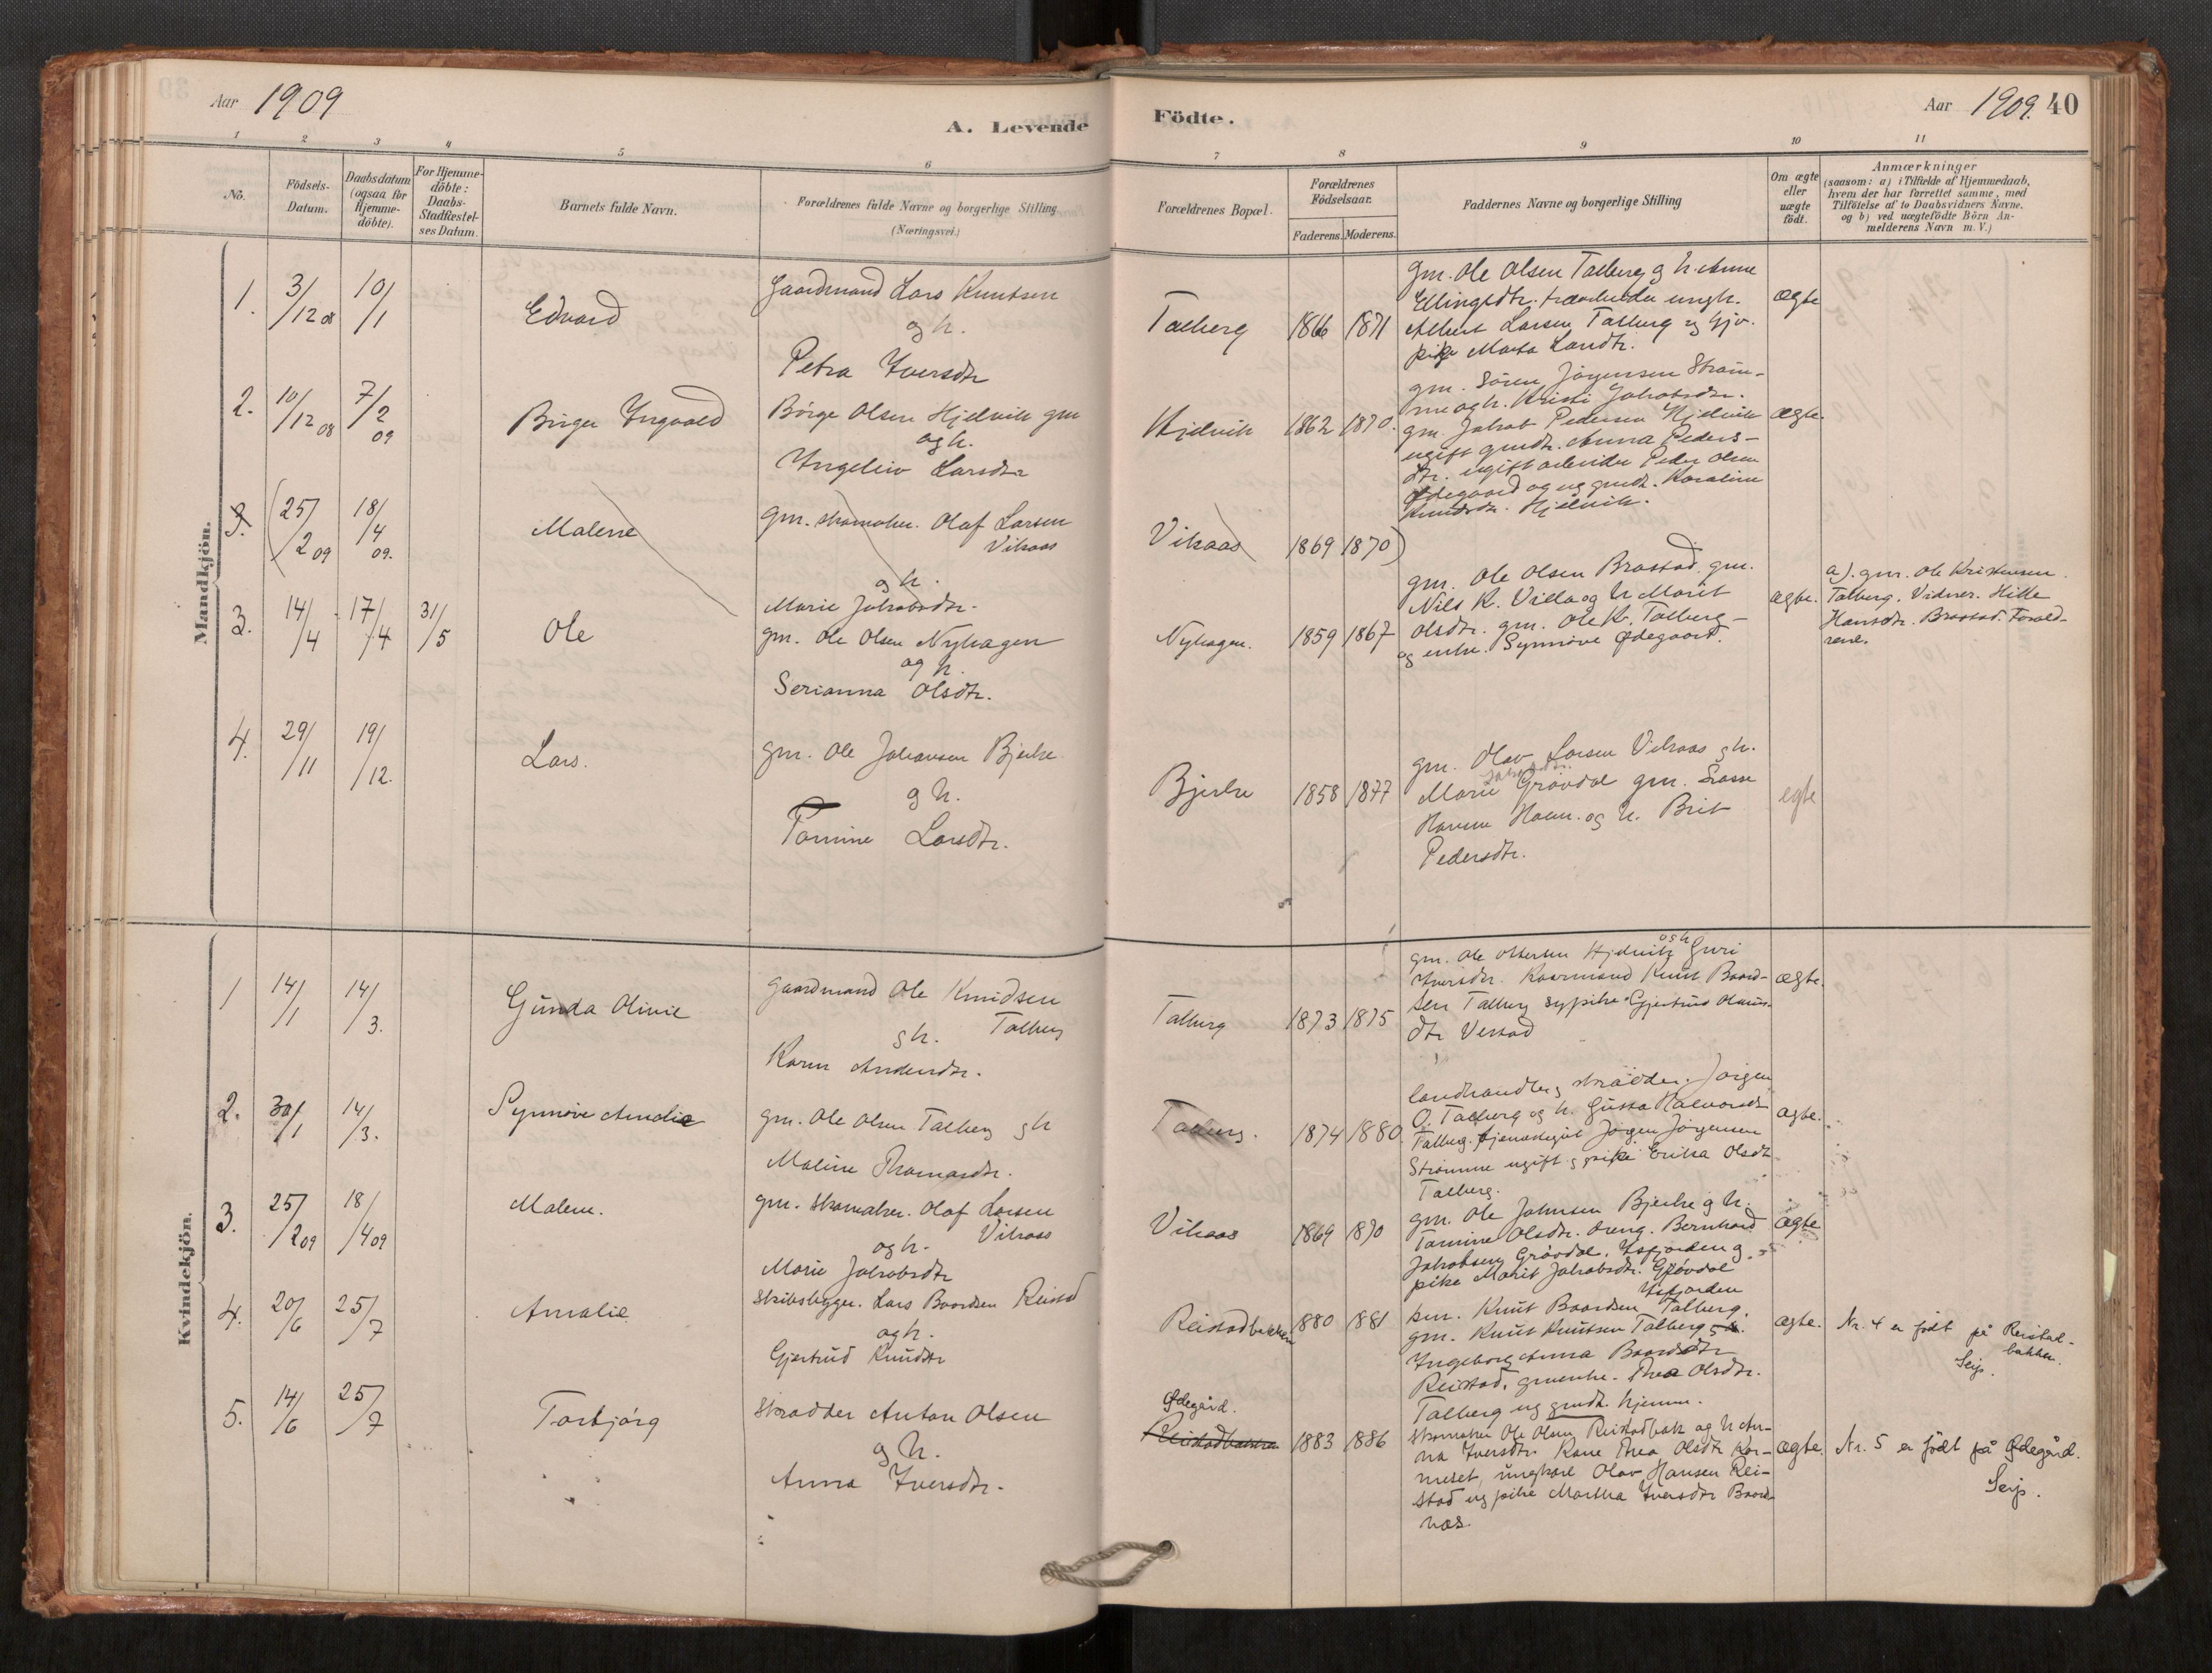 Aar 1909
A. Levende
Födte.
Aar 1909. 40
1 2 3 4 5 6 7 8 9 10 11
No.
Födsels-
Datum.
Daabsdatum
(ogsaa for
Hjemme-
döbte).
For Hjemme-
döbte:
Daabs-
Stadfæstel-
ses Datum.
Barnets fulde Navn.
Forældrenes fulde Navne og borgerlige Stilling
(Næringsvei.)
Forældrenes Bopæl.
Forældrenes
Födselsaar.
Faderens. Moderens.
Faddernes Navne og borgerlige Stilling
Om ægte
eller
uægte
födt.
Anmærkninger
(saasom: a) i Tilfælde af Hjemmedaab,
hvem der har forrettet samme, med
Tilföielse af to Daabsvidners Navne,
og b) ved uægtefödte Börn An-
melderens Navn m. V.)
Mandkjön.
1. 3/12 08 10/1 Edvard
Gaardmand Lars Knutsen
og h.
Petra Iversdtr
Talberg 1866 1871
gm. Ole Olsen Talberg og h. Anne
Ellingsdtr.
Albert Larsen Talberg og
pike Marta Larsdtr.
ægte
2. 10/12 08 7/2 09 Birger Ingvald
Börge Olsen Hjelvik gm
og h.
Ingeliv Larsdtr
Hjelvik 1862 1870.
gm. Sören Jörgensen Ström-
me og h. Kristi Jakobsdtr.
gm. Jakob Pedersen Hjelvik
ugift gmdtr. Anna Peders-
dtr. ugift arbeider Peder Olsen
Ødegaard og ug gmdt. Karoline
Knudsdtr. Hjelvik.
ægte.
3. (25/2 09 18/4 09. Malene
gm. skomaker. Olaf Larsen
Vikaas
og h.
Marie Jakobsdtr.
Vikaas 1869 1870)
3. 14/4 17/4 31/5 Ole
gm. Ole Olsen Nyhagen
og h.
Serianna Olsdtr.
Nyhagen. 1859 1867
gm. Ole Olsen Brastad. gm.
Nils K. Villa og h Marit
Olsdtr. gm. Ole K. Talberg-
og enke. Synnöve Ødegaard.
ægte.
a). gm. Ole Kristensen
Talberg. Vidner. Hille
Hansdtr. Brastad. Foræld-
rene.
4. 29/11 19/12. Lars.
gm. Ole Johansen Bjerke
og h.
Tomine Larsdtr.
Bjerke 1858 1877
gm. Olav Larsen Vikaas og h.
Jakobsdtr.
Marie Grövdal gm. Lasse
Hansen Hoem. og h. Brit
Pedersdtr.
egte
Kvindekjön.
1 14/1 14/3. Gunda Olivie
Gaardmand Ole Knudsen
og h. Talberg
Karen Andersdtr.
Talberg 1873 1875
gm. Ole Ottersen Hjelvik og h Guri
Iversdtr. Kaarmand Knut Baard-
sen Talberg sypike Gjertrud Olaus-
dtr Vestad
ægte.
2. 30/1 14/3. Synnöve Amalie
gm. Ole Olsen Talberg og h
Maline Thomasdtr.
Talberg. 1874 1880
landhandler og skrædder. Jörgen
O. Talberg og h. Gusta Halvorsdtr
Talberg. tjenestegut Jörgen Jörgensen
Strömme ugift og pike Erika Olsdt
Talberg.
ægte.
3. 25/2 09 18/4 09 Malene.
gm. skomaker. Olaf Larsen
og h. Vikaas
Marie Jakobsdtr
Vikaas 1869 1870
gm. Ole Johnsen Bjerke og h.
Tomine Olsdtr. dreng. Bernhard
Jakobsen Grövdal. Isfjorden og
pike Marit Jakobsdtr. Grövdal
Isfjorden
ægte
4. 20/6 25/7 Amalie
Skibsbygger. Lars Baardsen Reistad
og h.
Gjertrud Knudsdtr
Reistadbakken 1880 1881
km. Knut Baardsen Talberg.
gm. Knut Knutsen Talberg og h.
Ingeborg Anna Baardsdtr
Reistad. gmenke. Thea Olsdtr.
Talberg ug gmdt. hjemme.
ægte.
Nr. 4 er födt på Reistad-
bakken.
Seip.
5. 14/6 25/7 Torbjörg
Skrædder Anton Olsen
og h.
Anna Iversdtr.
Ødegård.
Reistadbakken 1883 1886
Skomaker Ole Olsen Reistadbak og h An-
na Iversdtr. Kone Thea Olsdtr Kor-
meset, ungkarl Olav Hansen Rei-
stad ug pike Martha Iversdtr Baard-
næs.
ægte.
Nr. 5 er födt på Ødegård.
Seip.